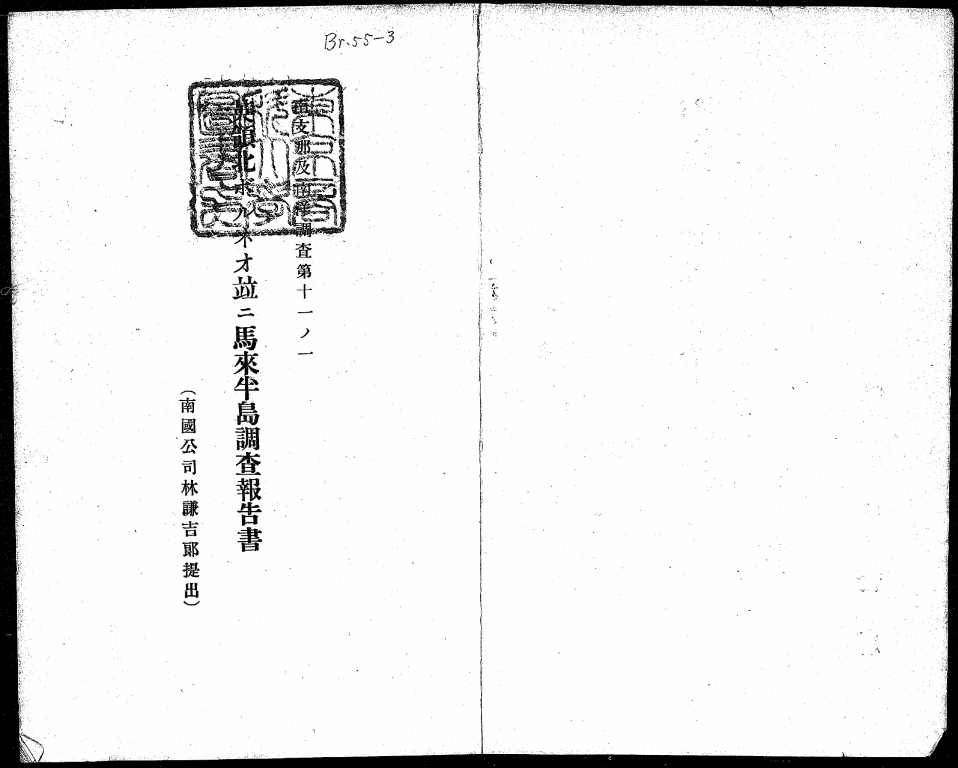 Br.55-3
南支那及南洋調査第十一ノ一
英領北ボルネオ竝ニ馬來半島調査報告書
(南國公司林謙吉郎提出)